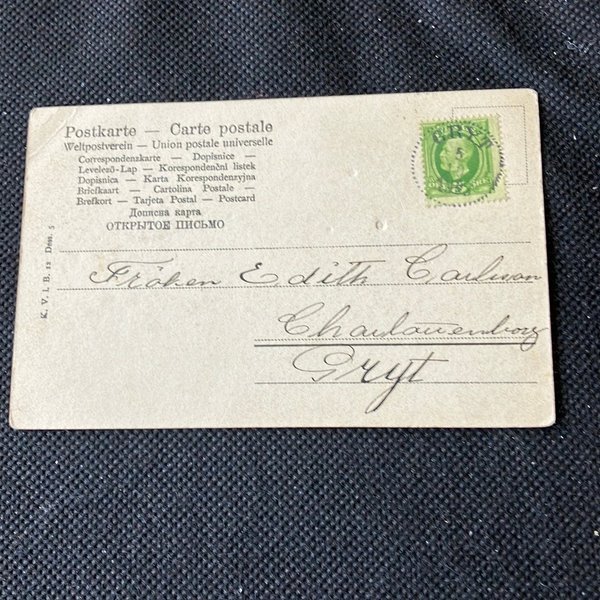 Postkarte — Carte postale
Weltpostverein — Union postale universelle
Correspondenzkarte — Dopisnice —
Levelező-Lap — Korespondenční lístek
Dopisnica — Karta Korespondenzyjna
Briefkaart — Cartolina Postale —
Brefkort — Tarjeta Postal — Postcard
Дописна карта
ОТКРЫТОЕ ПИСЬМО
GRYT
5
K. V. i. B. 12 Dess. 5
Fröken Edith Carlson
Charlottenborg
Gryt